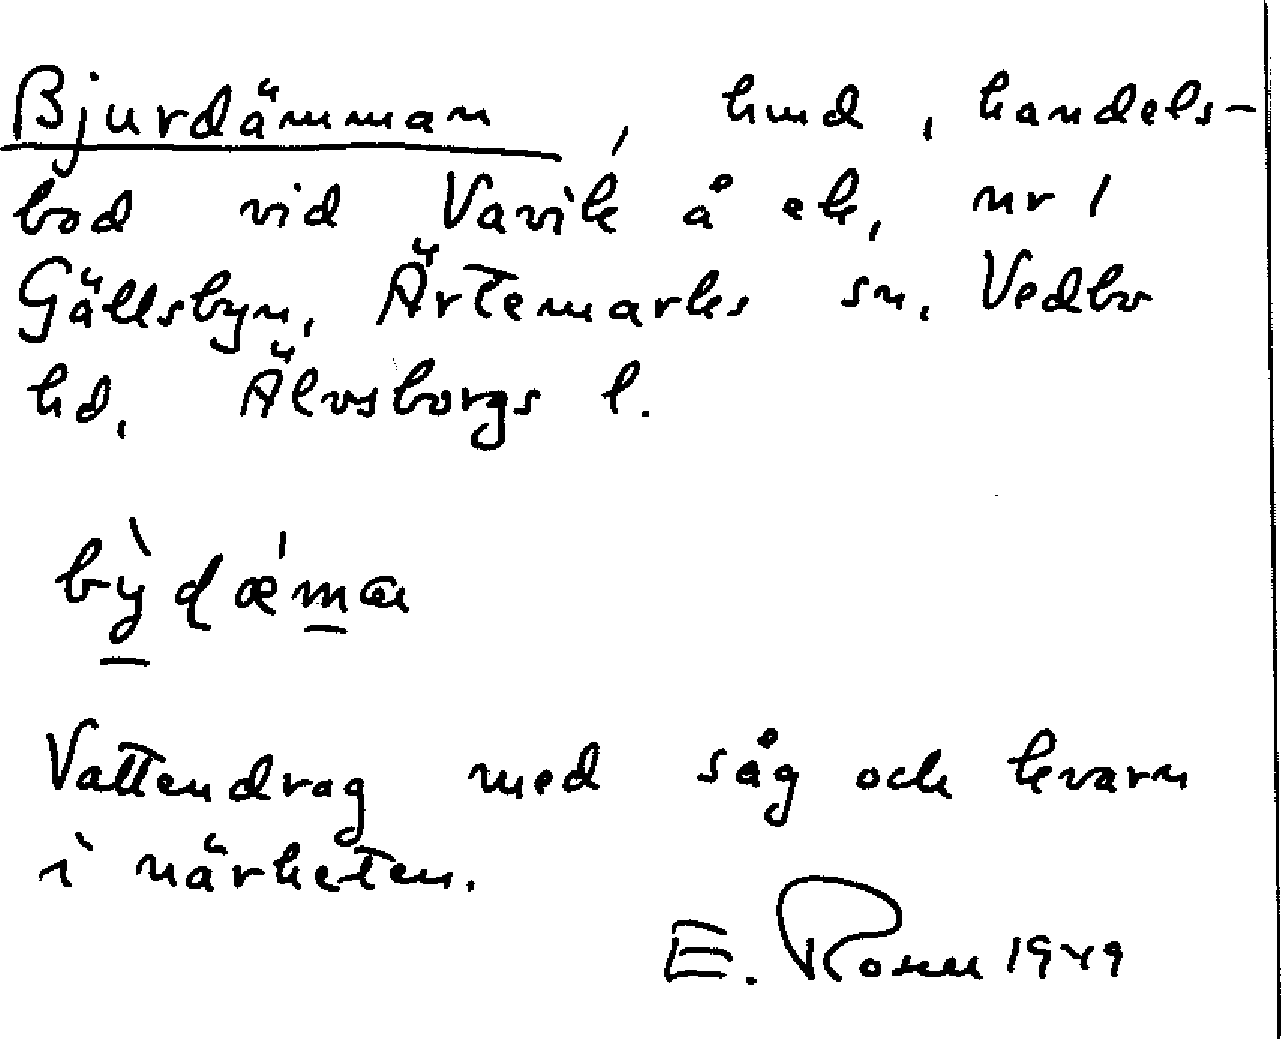 Bjurdämman, hmd, handels-
bod vid Vavik å ek, nr 1
Gällsbyn, Ärtemarks sn, Vedbo
hd, Älvsborgs l.
bỳdǽmæ
Vattendrag med såg och kvarn
i närheten.
E. 1949